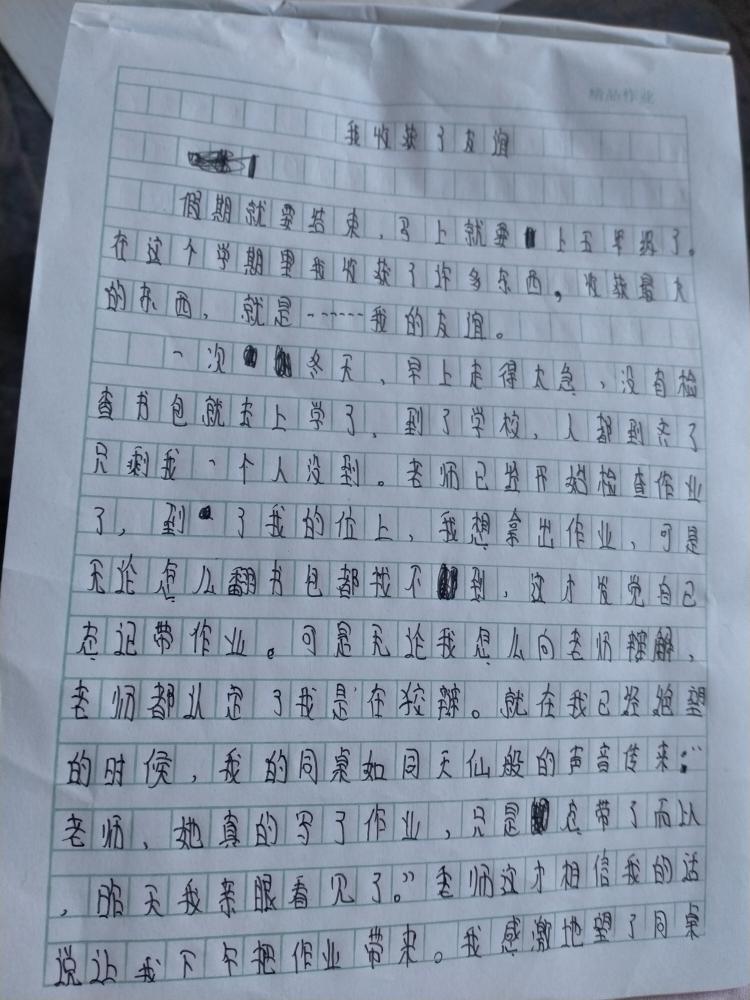 精品作业
我收获了友谊
假期就要结束，马上就要上五年级了。
在这个学期里我收获了许多东西，收获最大
的东西，就是……我的友谊。
一次冬天，早上走得太急，没有检
查书包就去上学了，到了学校，人都到齐了
只剩我一个人没到。老师已经开始检查作业
了，到了我的位上，我想拿出作业，可是
无论怎么翻书包都找不到，这才发觉自己
忘记带作业。可是无论我怎么向老师辩解，
老师都认定了我是在狡辩。就在我已经绝望
的时候，我的同桌如同天仙般的声音传来：“
老师，她真的写了作业，只是忘带了而以
，昨天我亲眼看见了。”老师这才相信我的话
说让我下午把作业带来。我感激地望了同桌